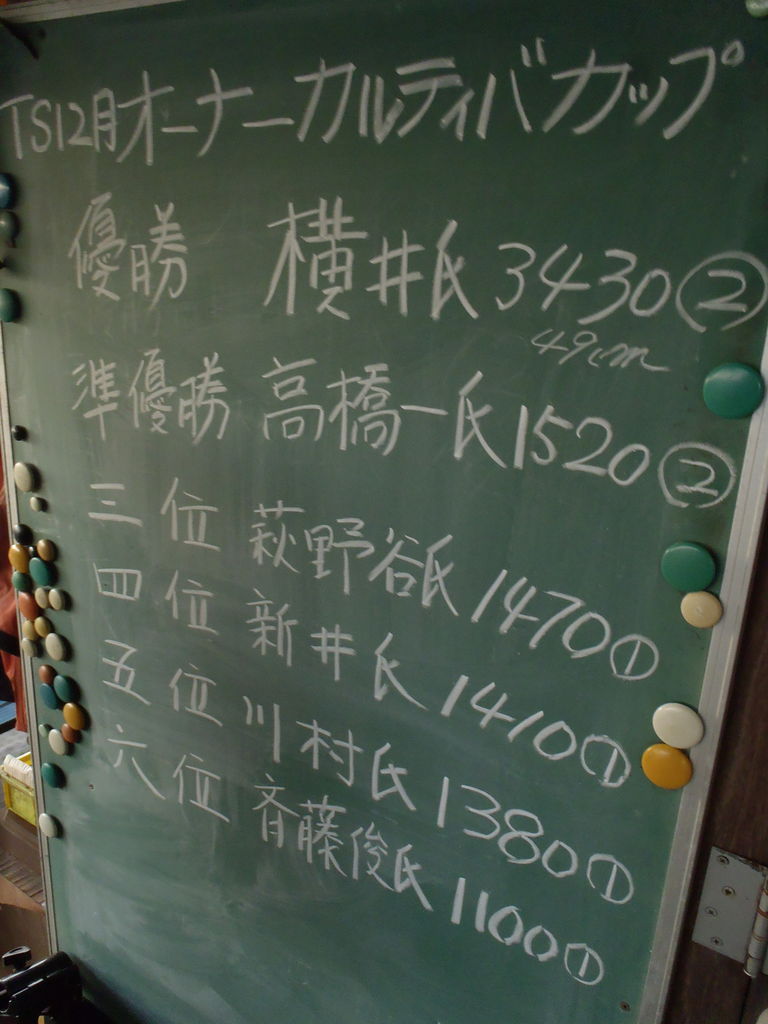 TS12月オーナーカルティバカップ
優勝 横井氏 3430②
49cm
準優勝 高橋一氏 1520②
三位 萩野谷氏 1470①
四位 新井氏 1410①
五位 川村氏 1380①
六位 斉藤俊氏 1100①